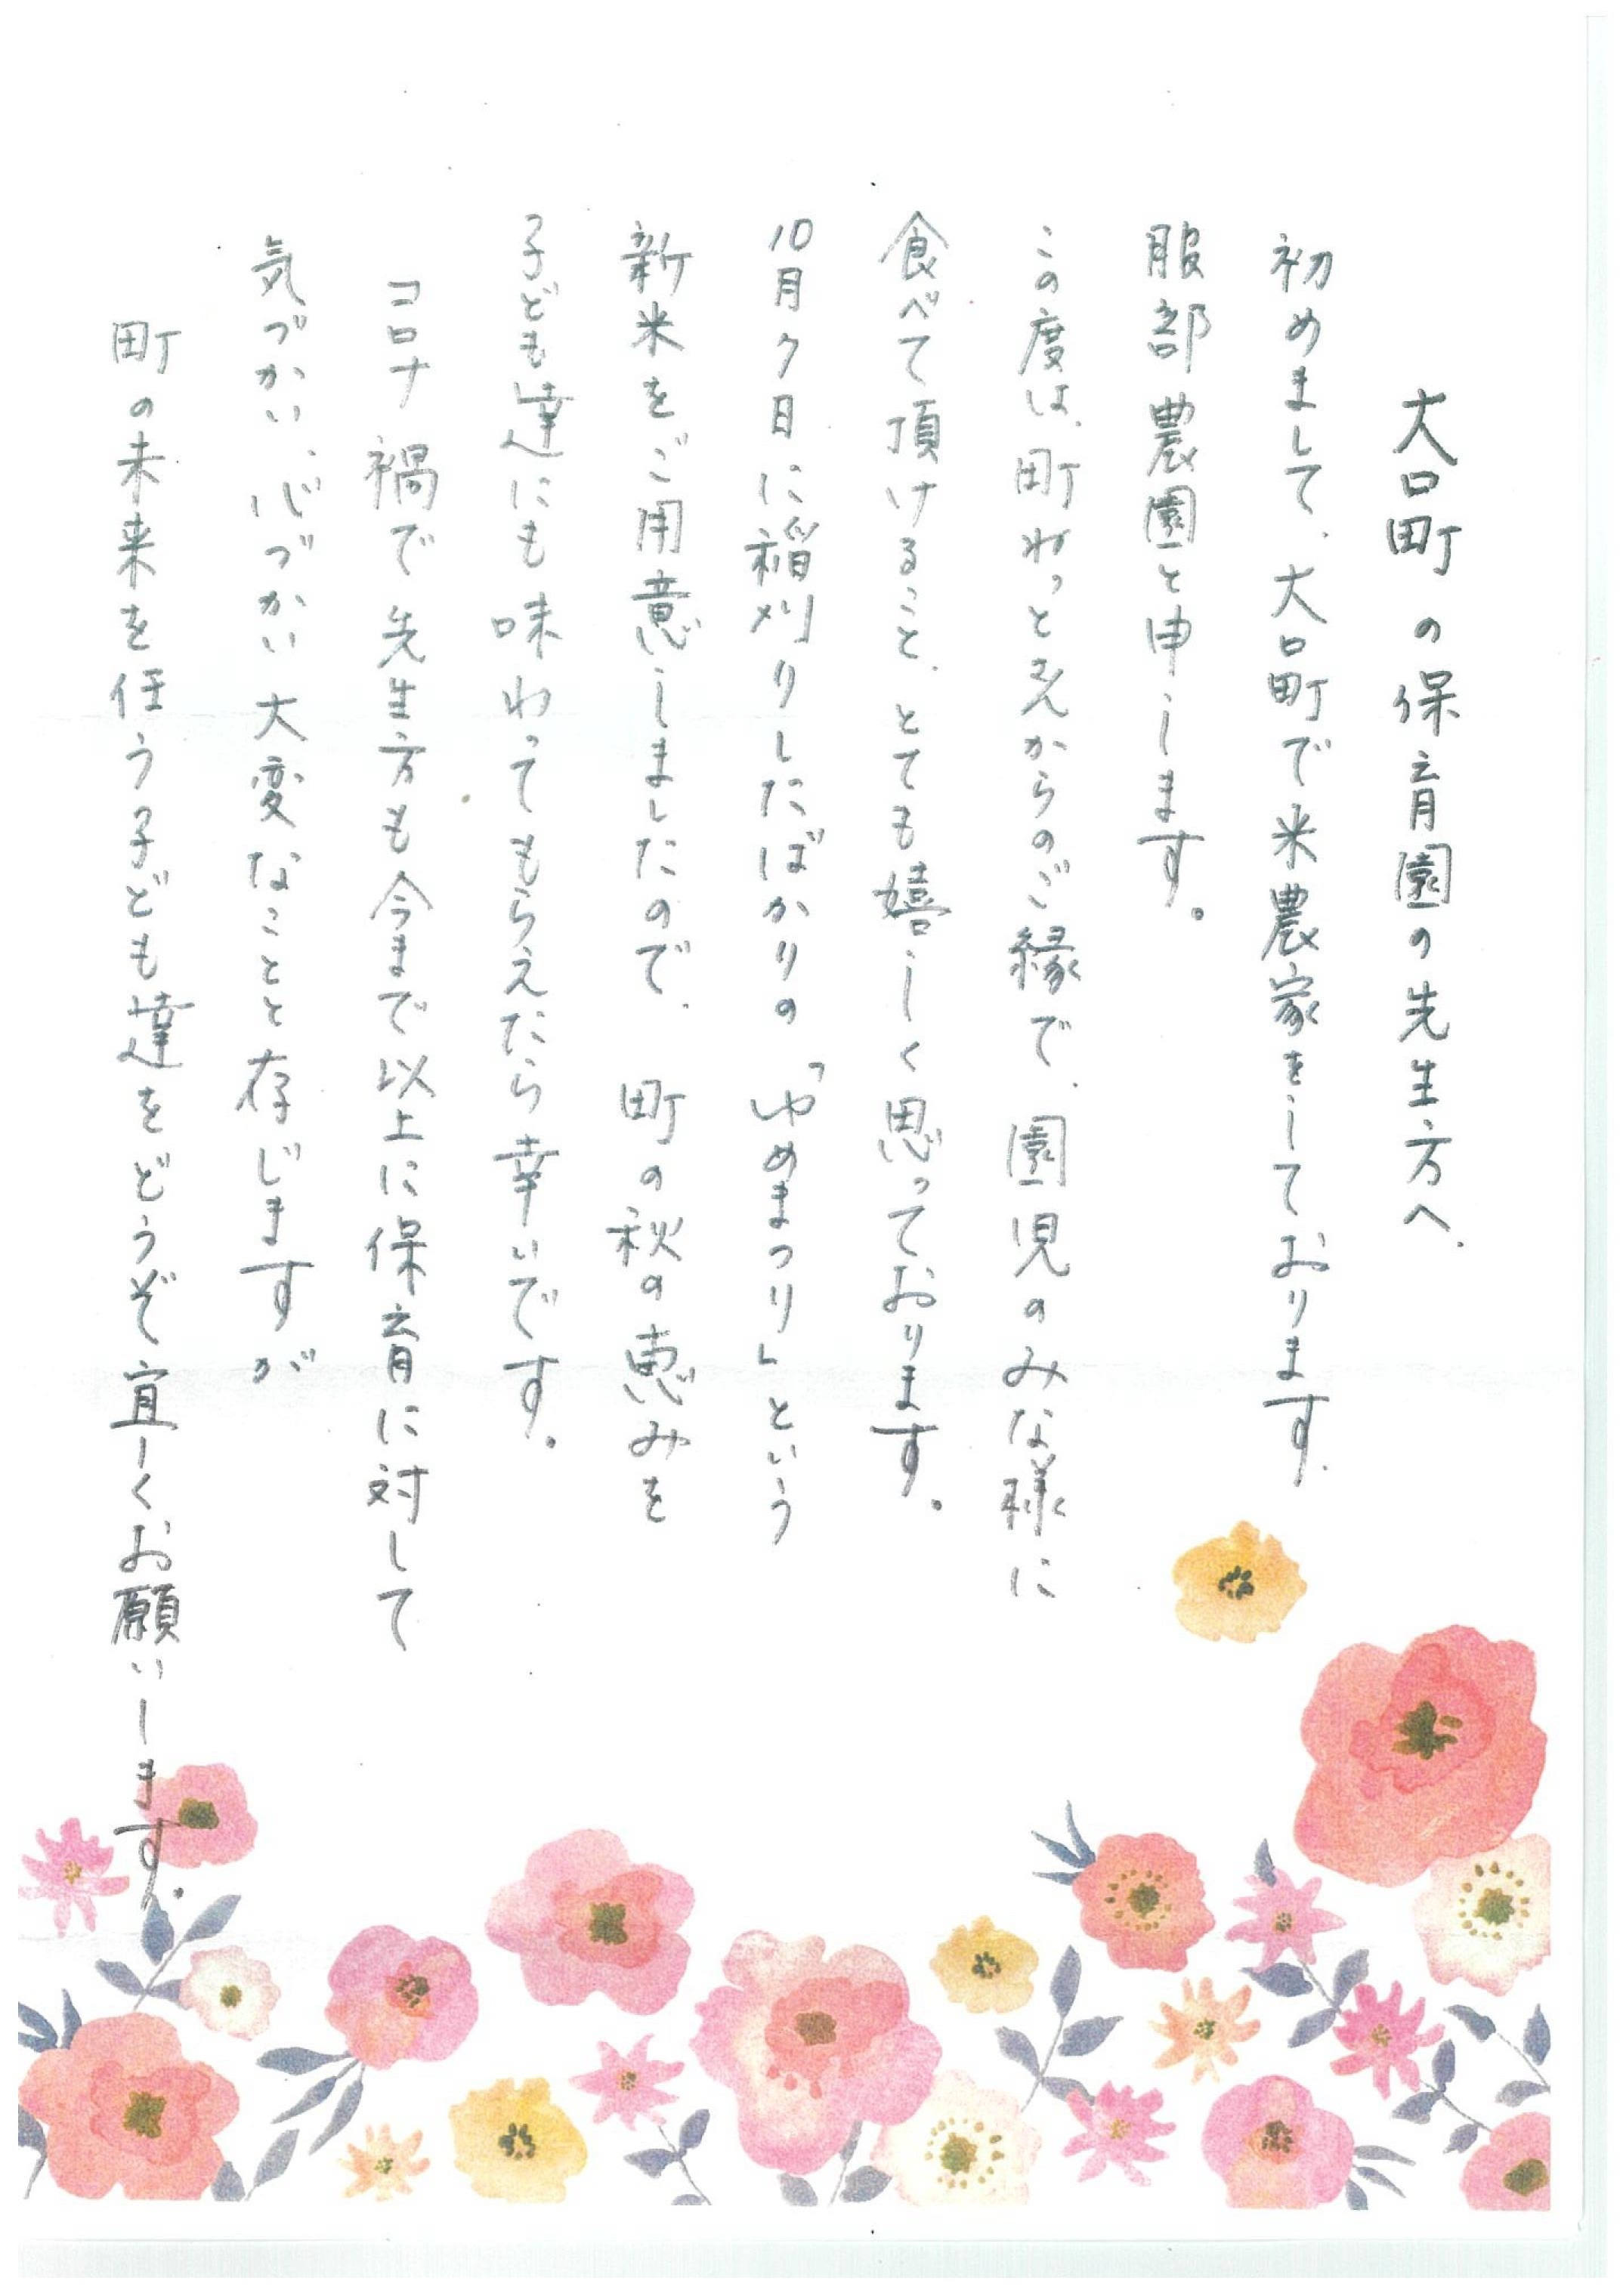 大口町の保育園の先生方へ.
初めまして、大口町で米農家をしております.
服部農園と申します。
この度は、町ねっとさんからのご縁で、園児のみな様に
食べて頂けること、とても嬉しく思っております。
10月7日に稲刈りしたばかりの「ゆめまつり」という
新米をご用意しましたので、町の秋の恵みを
子ども達にも味わってもらえたら幸いです。
コロナ禍で先生方も今まで以上に保育に対して
気づかい、心づかい大変なことと存じますが
町の未来を任う子ども達をどうぞ宜しくお願いします。